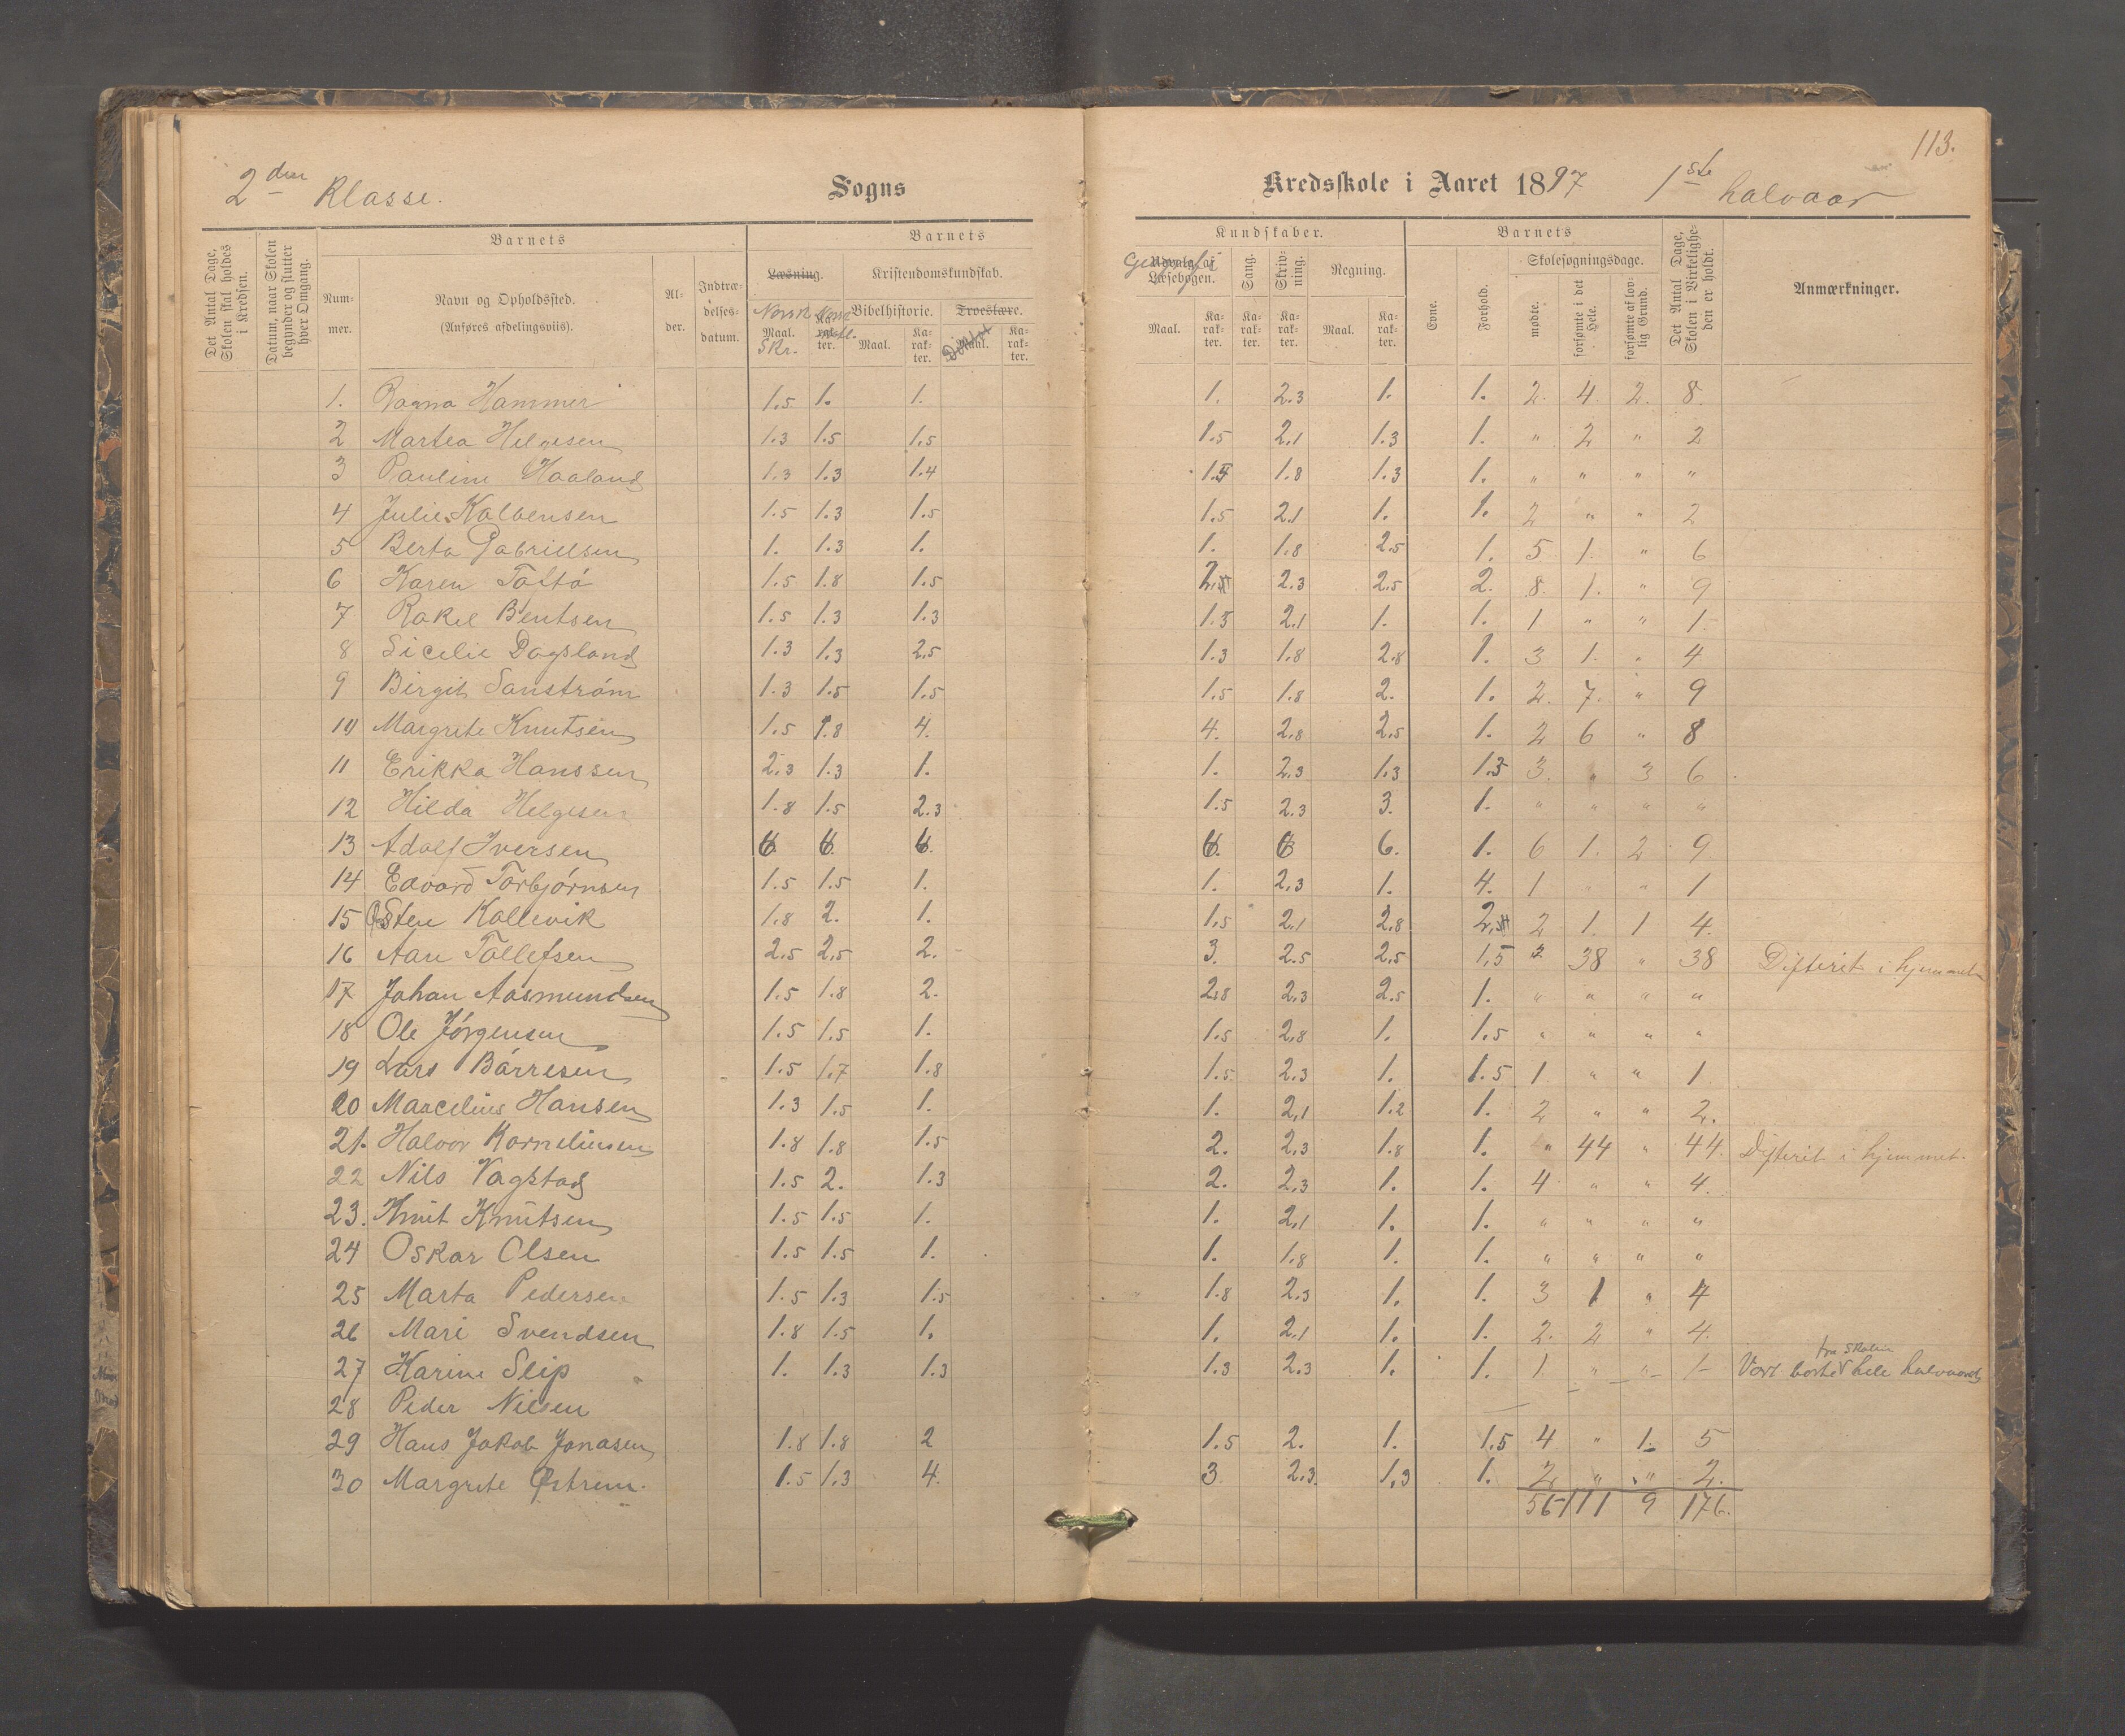 113.
2den Klasse. Sogns Kredsskole i Aaret 1897 1ste halvaar
Det Antal Dage, Skolen skal holdes i Kredsen.
Datum, naar Skolen begynder og slutter hver Omgang.
Barnets
Nummer.
Navn og Opholdssted.
(Anføres afdelingsviis).
Alder.
Indtrædelsesdatum.
Barnets
Læsning. Kristendomskundskab.
Norsk Bibelhistorie. Troeslære.
Maal. Skr. Karakter. Maal. Karakter. Maal. Karakter.
Kundskaber.
Udvalg af Læsebogen. Sang. Skrivning. Regning.
Maal. Karakter. Karakter. Karakter. Maal. Karakter.
Barnets
Evne. Forhold. Skolesøgningsdage.
mødte. forsømte i det Hele. forsømte af lovlig Grund.
Det Antal Dage, Skolen i Virkeligheden er holdt.
Anmærkninger.
1. Ragna Hammer 1.5 1. 1. 1. 2.3 1. 1. 2. 4. 2. 8.
2 Martea Helgesen 1.3 1.5 1.5 1.5 2.1 1.3 1. " 2 " 2
3 Pauline Haaland 1.3 1.3 1.4 1.8 1.3 1. " " " "
4 Julie Kalvensen 1.5 1.3 1.5 1.5 2.1 1. 1. 2 " " 2
5 Berta Gabrielsen 1. 1.3 1. 1. 1.8 2.5 1. 5 1. " 6
6 Karen Toftö 1.5 1.8 1.5 2.3 2.5 2. 8. 1. " 9
7 Rakel Bentsen 1.5 1.3 1.3 1.3 2.1 1. 1. 1 " " 1.
8 Sicelie Dagsland 1.3 1.3 2.5 1.3 1.8 2.8 1. 3 1. " 4
9 Birgit Sanström 1.3 1.5 1.5 1.5 1.8 2. 1. 2. 7. " 9
10 Margrete Knutsen 1.5 1.8 4. 4. 2.8 2.5 1. 2 6 " 8
11 Erikka Hanssen 2.3 1.3 1. 1. 2.3 1.3 1.3 3. " 3 6
12 Hilda Helgesen 1.8 1.5 2.3 1.5 2.3 3. 1. " " " "
13 Adolf Iversen 6. 6. 6. 6. 6 6. 1. 6 1. 2 9
14 Edvard Torbjörnsen 1.5 1.5 1. 1. 2.3 1. 4. 1 " " 1
15 Østen Kallevik 1.8 2. 1. 1.5 2.1 2.8 2 1. 1 4.
16 Aan Tallefsen 2.5 2.5 2. 3. 2.5 2.5 1.5 " 38 " 38 Difterit i hjemmet
17 Johan Aasmundsen 1.5 1.8 2. 2.8 2.3 2.5 1. " " " "
18 Ole Jörgensen 1.5 1.5 1. 1.5 2.8 1. 1.5 " " " "
19 Lars Börresen 1.5 1.7 1.8 1.5 2.3 1. 1.5 1 " " 1
20 Marcelius Hansen 1.3 1.5 1. 1. 2.1 1.2 1. 2 " " 2.
21. Halvor Korneliusen 1.8 1.8 1.5 2. 2.3 1.8 1. " 44 " 44. Difterit i hjemmet.
22 Nils Vagstad 1.5 2. 1.3 2. 2.3 1. 1. 4 " " 4.
23. Knut Knutsen 1.5 1.5 1. 1. 2.1 1. 1. " " " "
24 Oskar Olsen 1.5 1.5 1. 1. 1.8 1. 1. " " " "
25 Marta Pedersen 1.5 1.3 1.5 1.8 2.3 1. 1. 3 1 " 4
26 Mari Svendsen 1.8 1.5 1. 1. 2.1 1. 1. 2. 2 " 4.
27 Karine Slip 1. 1.3 1.3 1.3 2.3 1. 1. 1 " " 1 Vært borte fra skolen hele halvaaret
28 Peder Nilsen
29 Hans Jakob Jonasen 1.8 1.8 2 1.5 2. 1. 1.5 4 " 1. 5
30 Margrete Østrem. 1.5 1.3 4. 3 2.3. 1.3 1. 2 " " 2.
56 111 9 176.